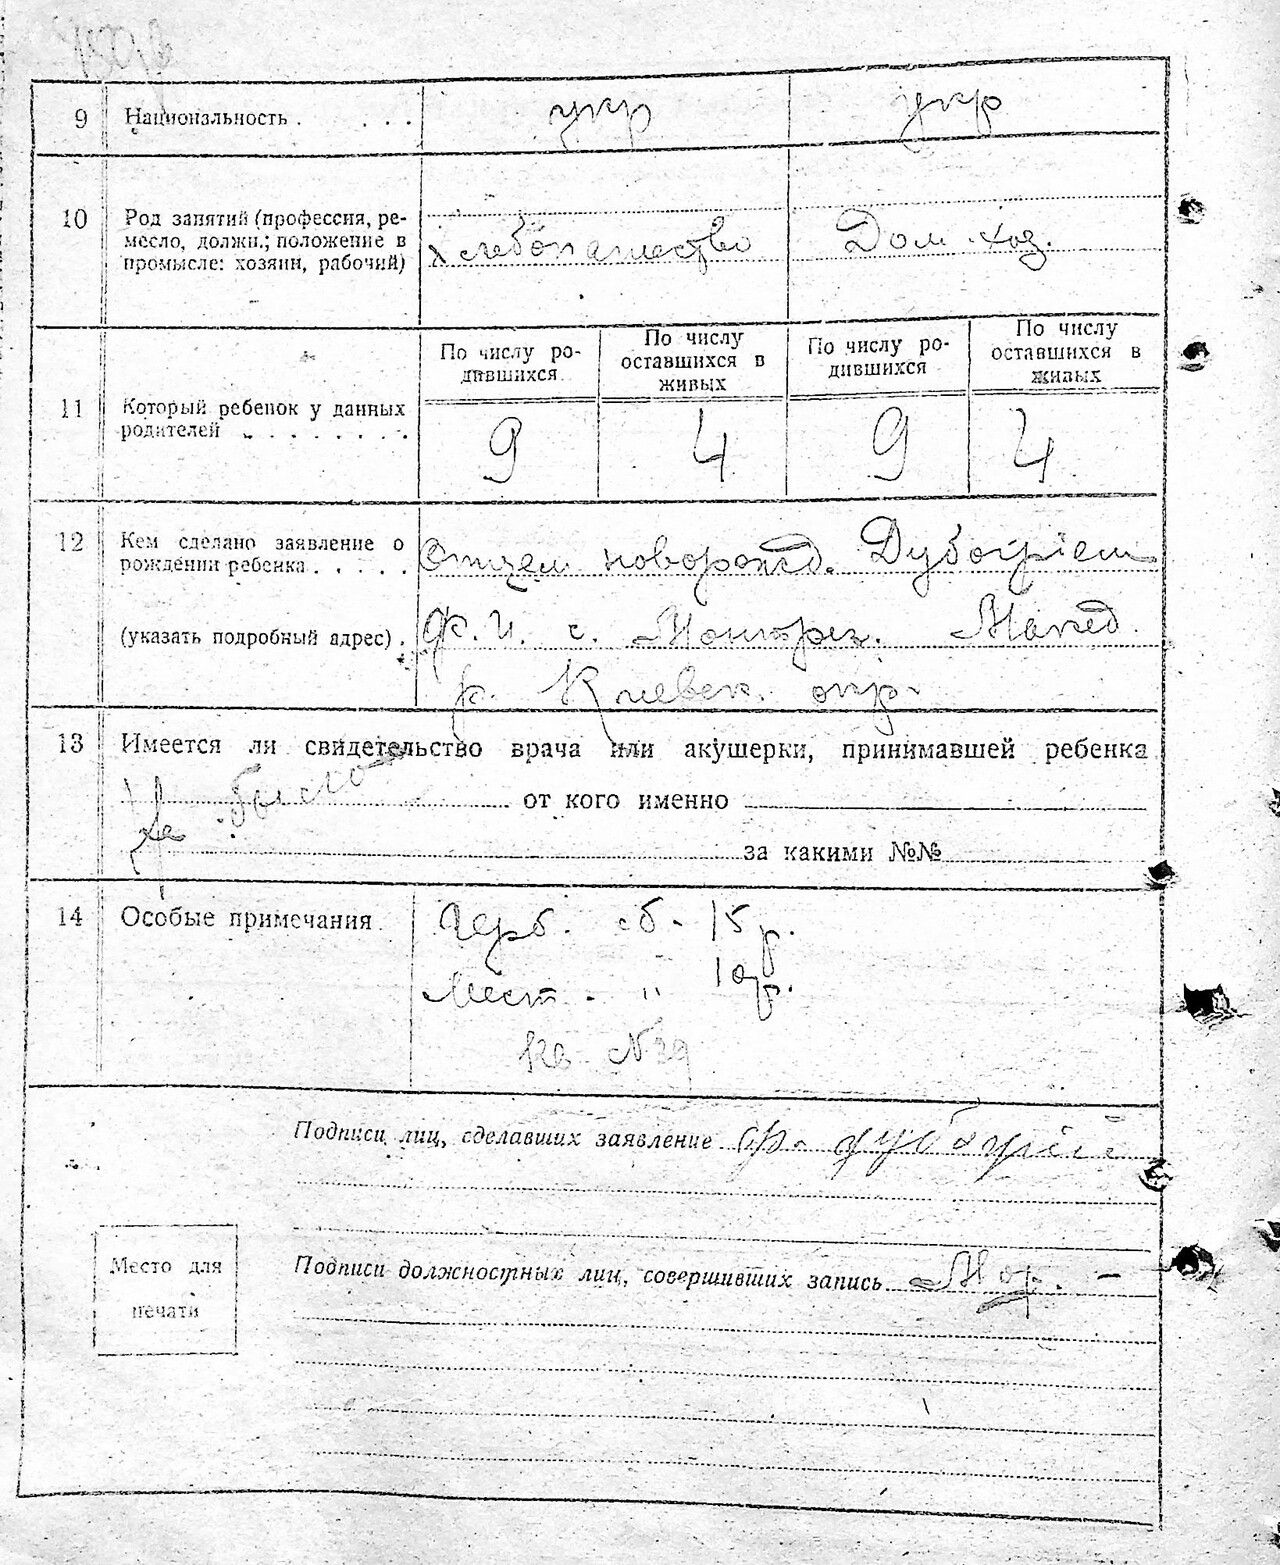 9 Национальность . . . . укр укр
10 Род занятий (профессия, ре-
месло, должн.; положение в
промысле: хозяин, рабочий)
хлебопашество Дом. хоз.
По числу ро-
дившихся
По числу
оставшихся в
живых
По числу ро-
дившихся
По числу
оставшихся в
живых
11 Который ребенок у данных
родителей . . . . . . . .
9 4 9 4
12 Кем сделано заявление о
рождении ребенка . . . . .
(указать подробный адрес) .
Отцем новорожд.
Ф. И. с. Макед.
р. Киевск. окр.
13 Имеется ли свидетельство врача или акушерки, принимавшей ребенка
Не было от кого именно
за какими №№
14 Особые примечания
Герб. сб. 15 р.
Мест. " 10 р.
Кв. № 39
Подписи лиц, сделавших заявление Ф.
Место для
печати
Подписи должностных лиц, совершивших запись